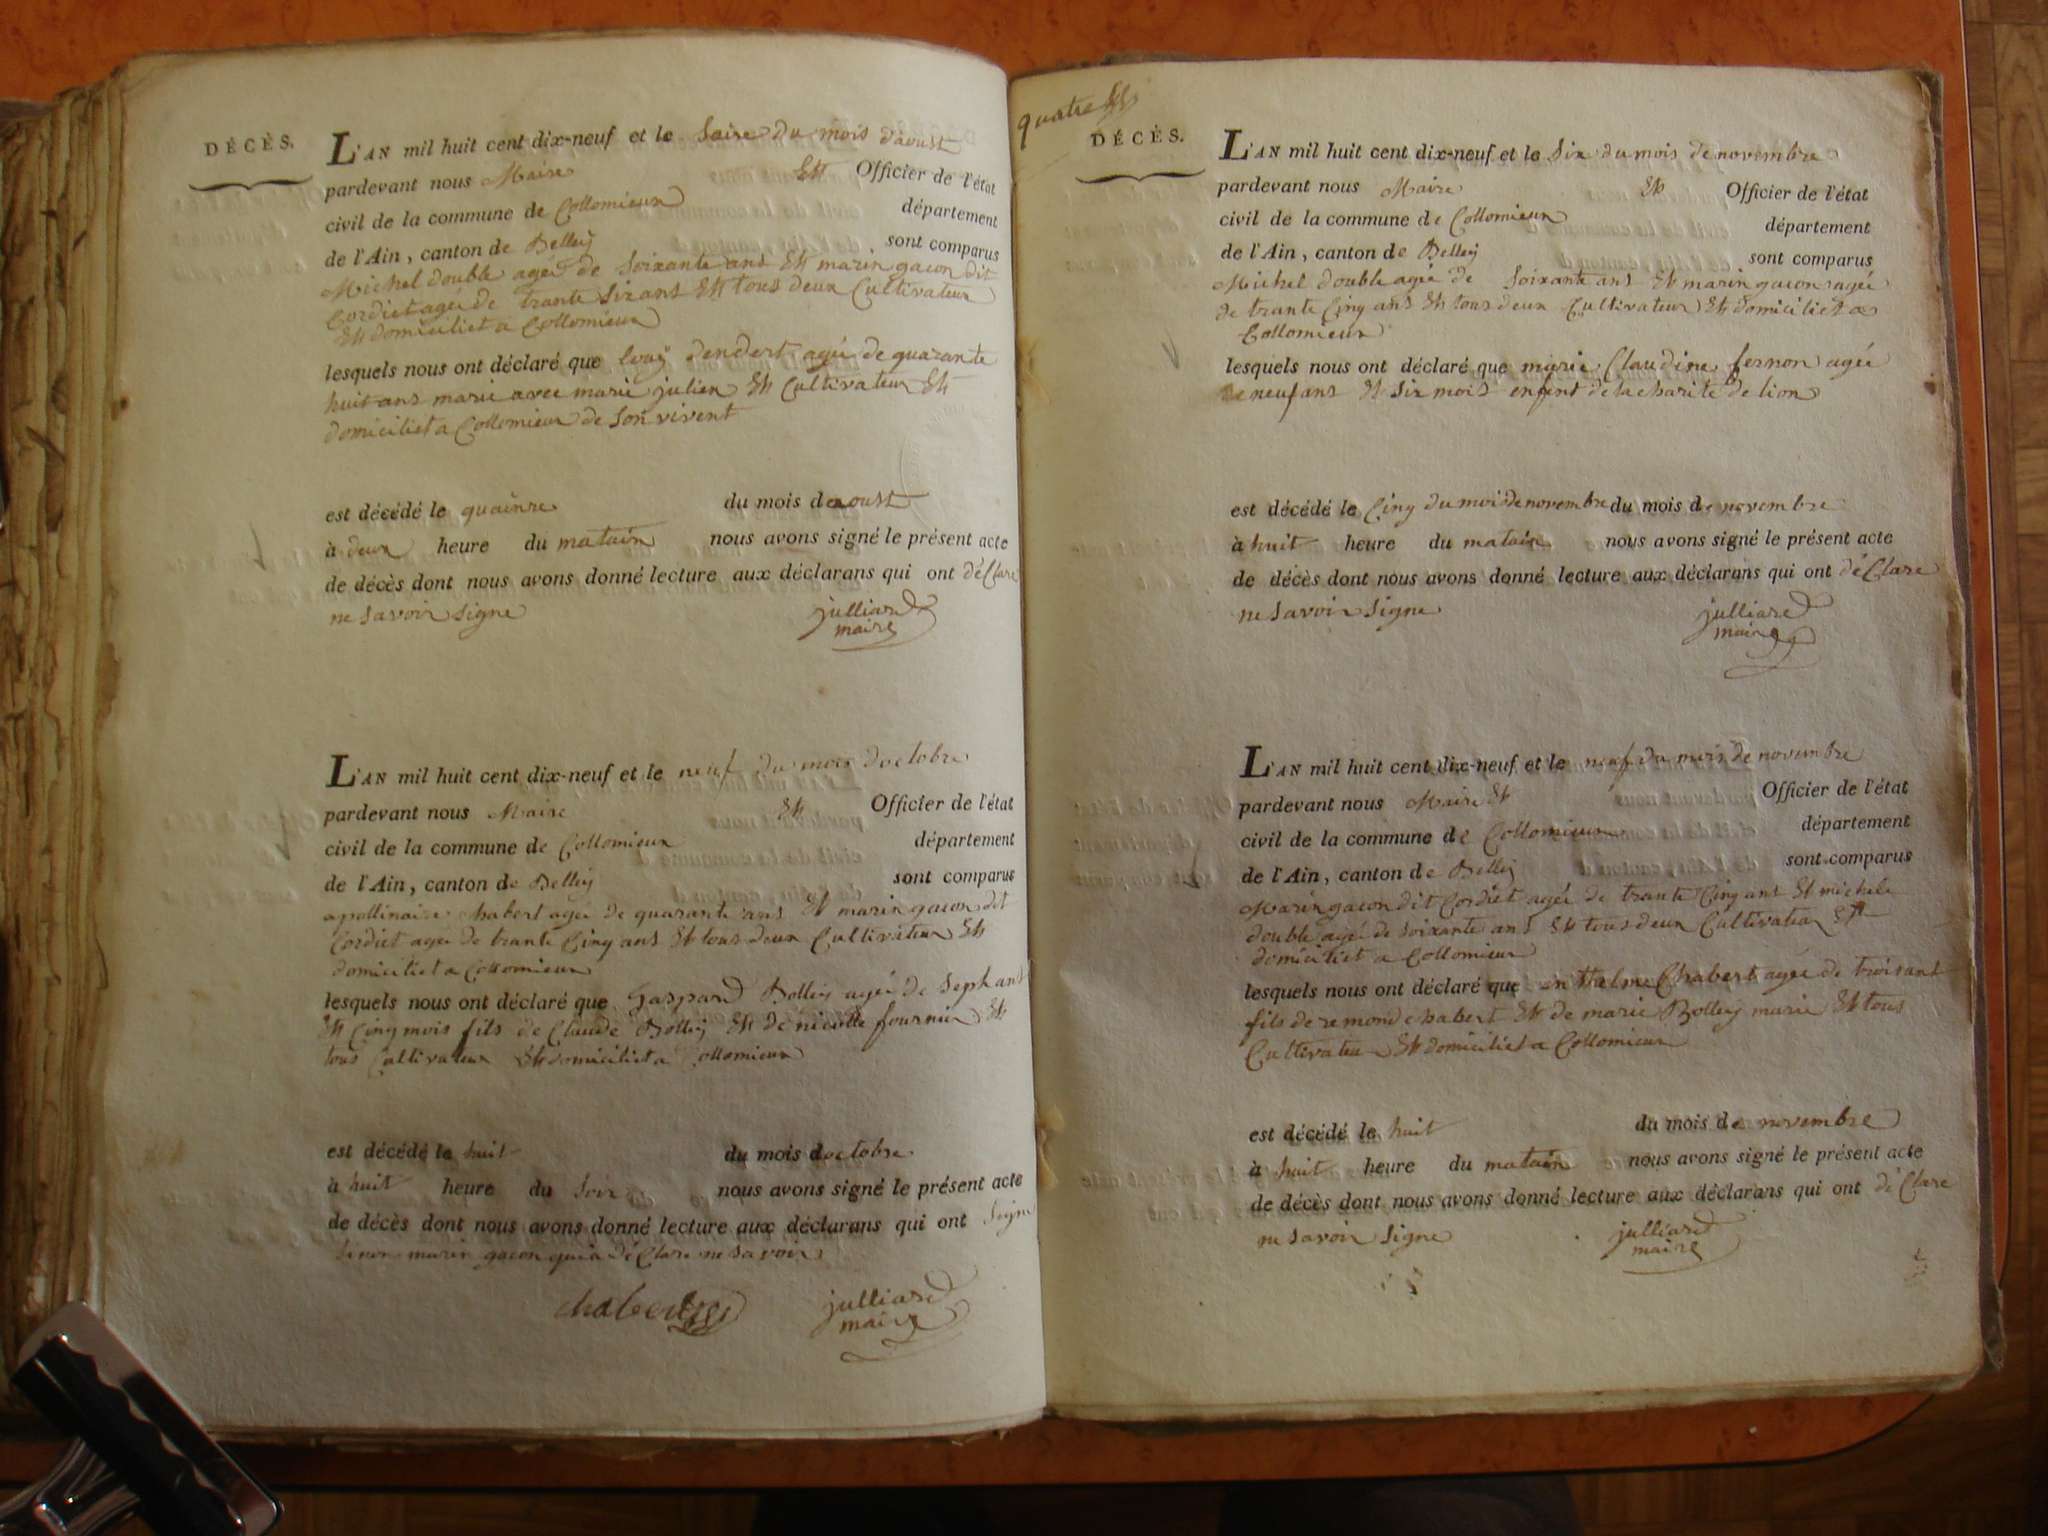 DÉCÈS.
L'AN mil huit cent dix-neuf et le Saize du mois daoust
pardevant nous Maire Et Officier de l'état
civil de la commune de Collomieux département
de l'Ain, canton de Belley sont comparus
Michel double agée de Soixante ans Et marin gacon dit
Cordiet agée de trante Six ans Et tous deux Cultivateur
Et domiciliet a Collomieux
lesquels nous ont déclaré que louy dendert agée de quarante
huit ans marié avec marie julien Et Cultivateur Et
domiciliet a Collomieux de Son vivent
est décédé le quainze du mois de aoust
à deux heure du matain nous avons signé le présent acte
de décès dont nous avons donné lecture aux déclarans qui ont déClare
ne Savoir Signe julliard
maire
L'AN mil huit cent dix-neuf et le neuf du mois doctobre
pardevant nous Maire Et Officier de l'état
civil de la commune de Collomieux département
de l'Ain, canton de Belley sont comparus
apollinaire chabert agée de quarante ans Et marin gacon dit
Cordiet agée de trante Cinq ans Et tous deux Cultivateur Et
domiciliet a Collomieux
lesquels nous ont déclaré que Gaspard Bolley agée de Sept ans
Et Cinq mois fils de Claude Bolley Et de nicolle fournier Et
tous Cultivateur Et domiciliet a Collomieux
est décédé le huit du mois doctobre
à huit heure du Soir nous avons signé le présent acte
de décès dont nous avons donné lecture aux déclarans qui ont Signe
Sinon marin gacon qui a déClare ne Savoir
chabert julliard
maire
quatre Et
DÉCÈS.
L'AN mil huit cent dix-neuf et le Six du mois de novembre
pardevant nous Maire Et Officier de l'état
civil de la commune de Collomieux département
de l'Ain, canton de Belley sont comparus
Michel double agée de Soixante ans Et marin gacon agée
de trante Cinq ans Et tous deux Cultivateur Et domiciliet a
Collomieux
lesquels nous ont déclaré que marie Claudine fernon agée
de neuf ans Et Six mois enfent de la charité de lion
est décédé le Cinq du mois de novembre du mois de novembre
à huit heure du matain nous avons signé le présent acte
de décès dont nous avons donné lecture aux déclarans qui ont déClare
ne Savoir Signe julliard
maire
L'AN mil huit cent dix-neuf et le neuf du mois de novembre
pardevant nous Maire Et Officier de l'état
civil de la commune de Collomieux département
de l'Ain, canton de Belley sont comparus
Marin gacon dit Cordiet agée de trante Cinq ans Et michele
double agée de Soixante ans Et tous deux Cultivateur Et
domiciliet a Collomieux
lesquels nous ont déclaré que antelme Chabert agée de trois ant
fils de remond chabert Et de marie Bolley marie Et tous
Cultivateur Et domiciliet a Collomieux
est décédé le huit du mois de novembre
à huit heure du matain nous avons signé le présent acte
de décès dont nous avons donné lecture aux déclarans qui ont déClare
ne Savoir Signe julliard
maire